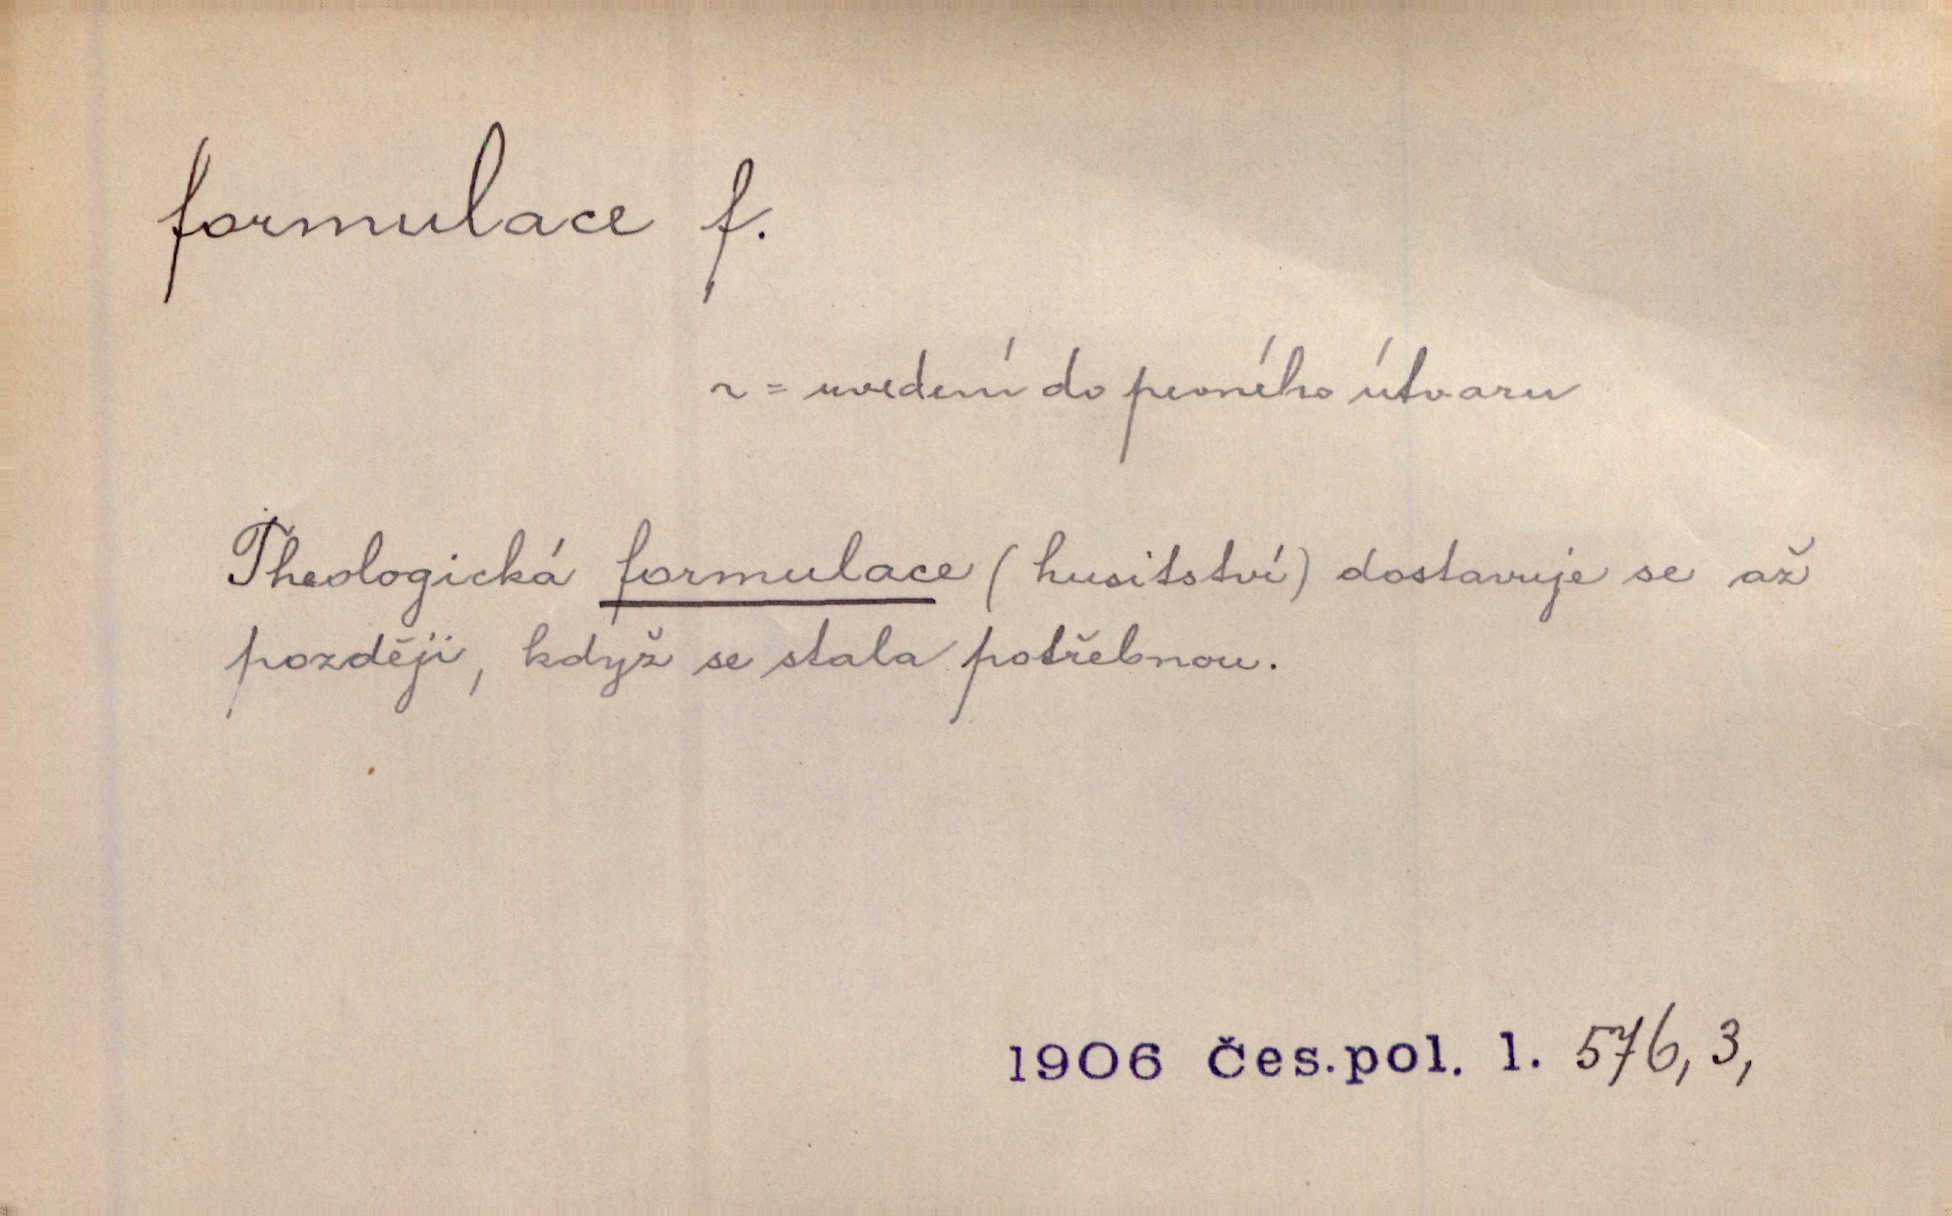 formulace f.
~ = uvedení do pevného útvaru
Theologická formulace (husitství) dostavuje se až
později, když se stala potřebnou.
1906 Čes.pol. 1. 576, 3,